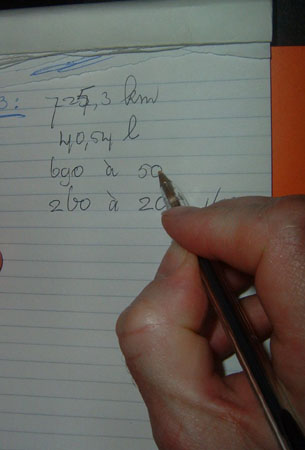 3:
725,3 km
40,54 l
690 à 50
260 à 20